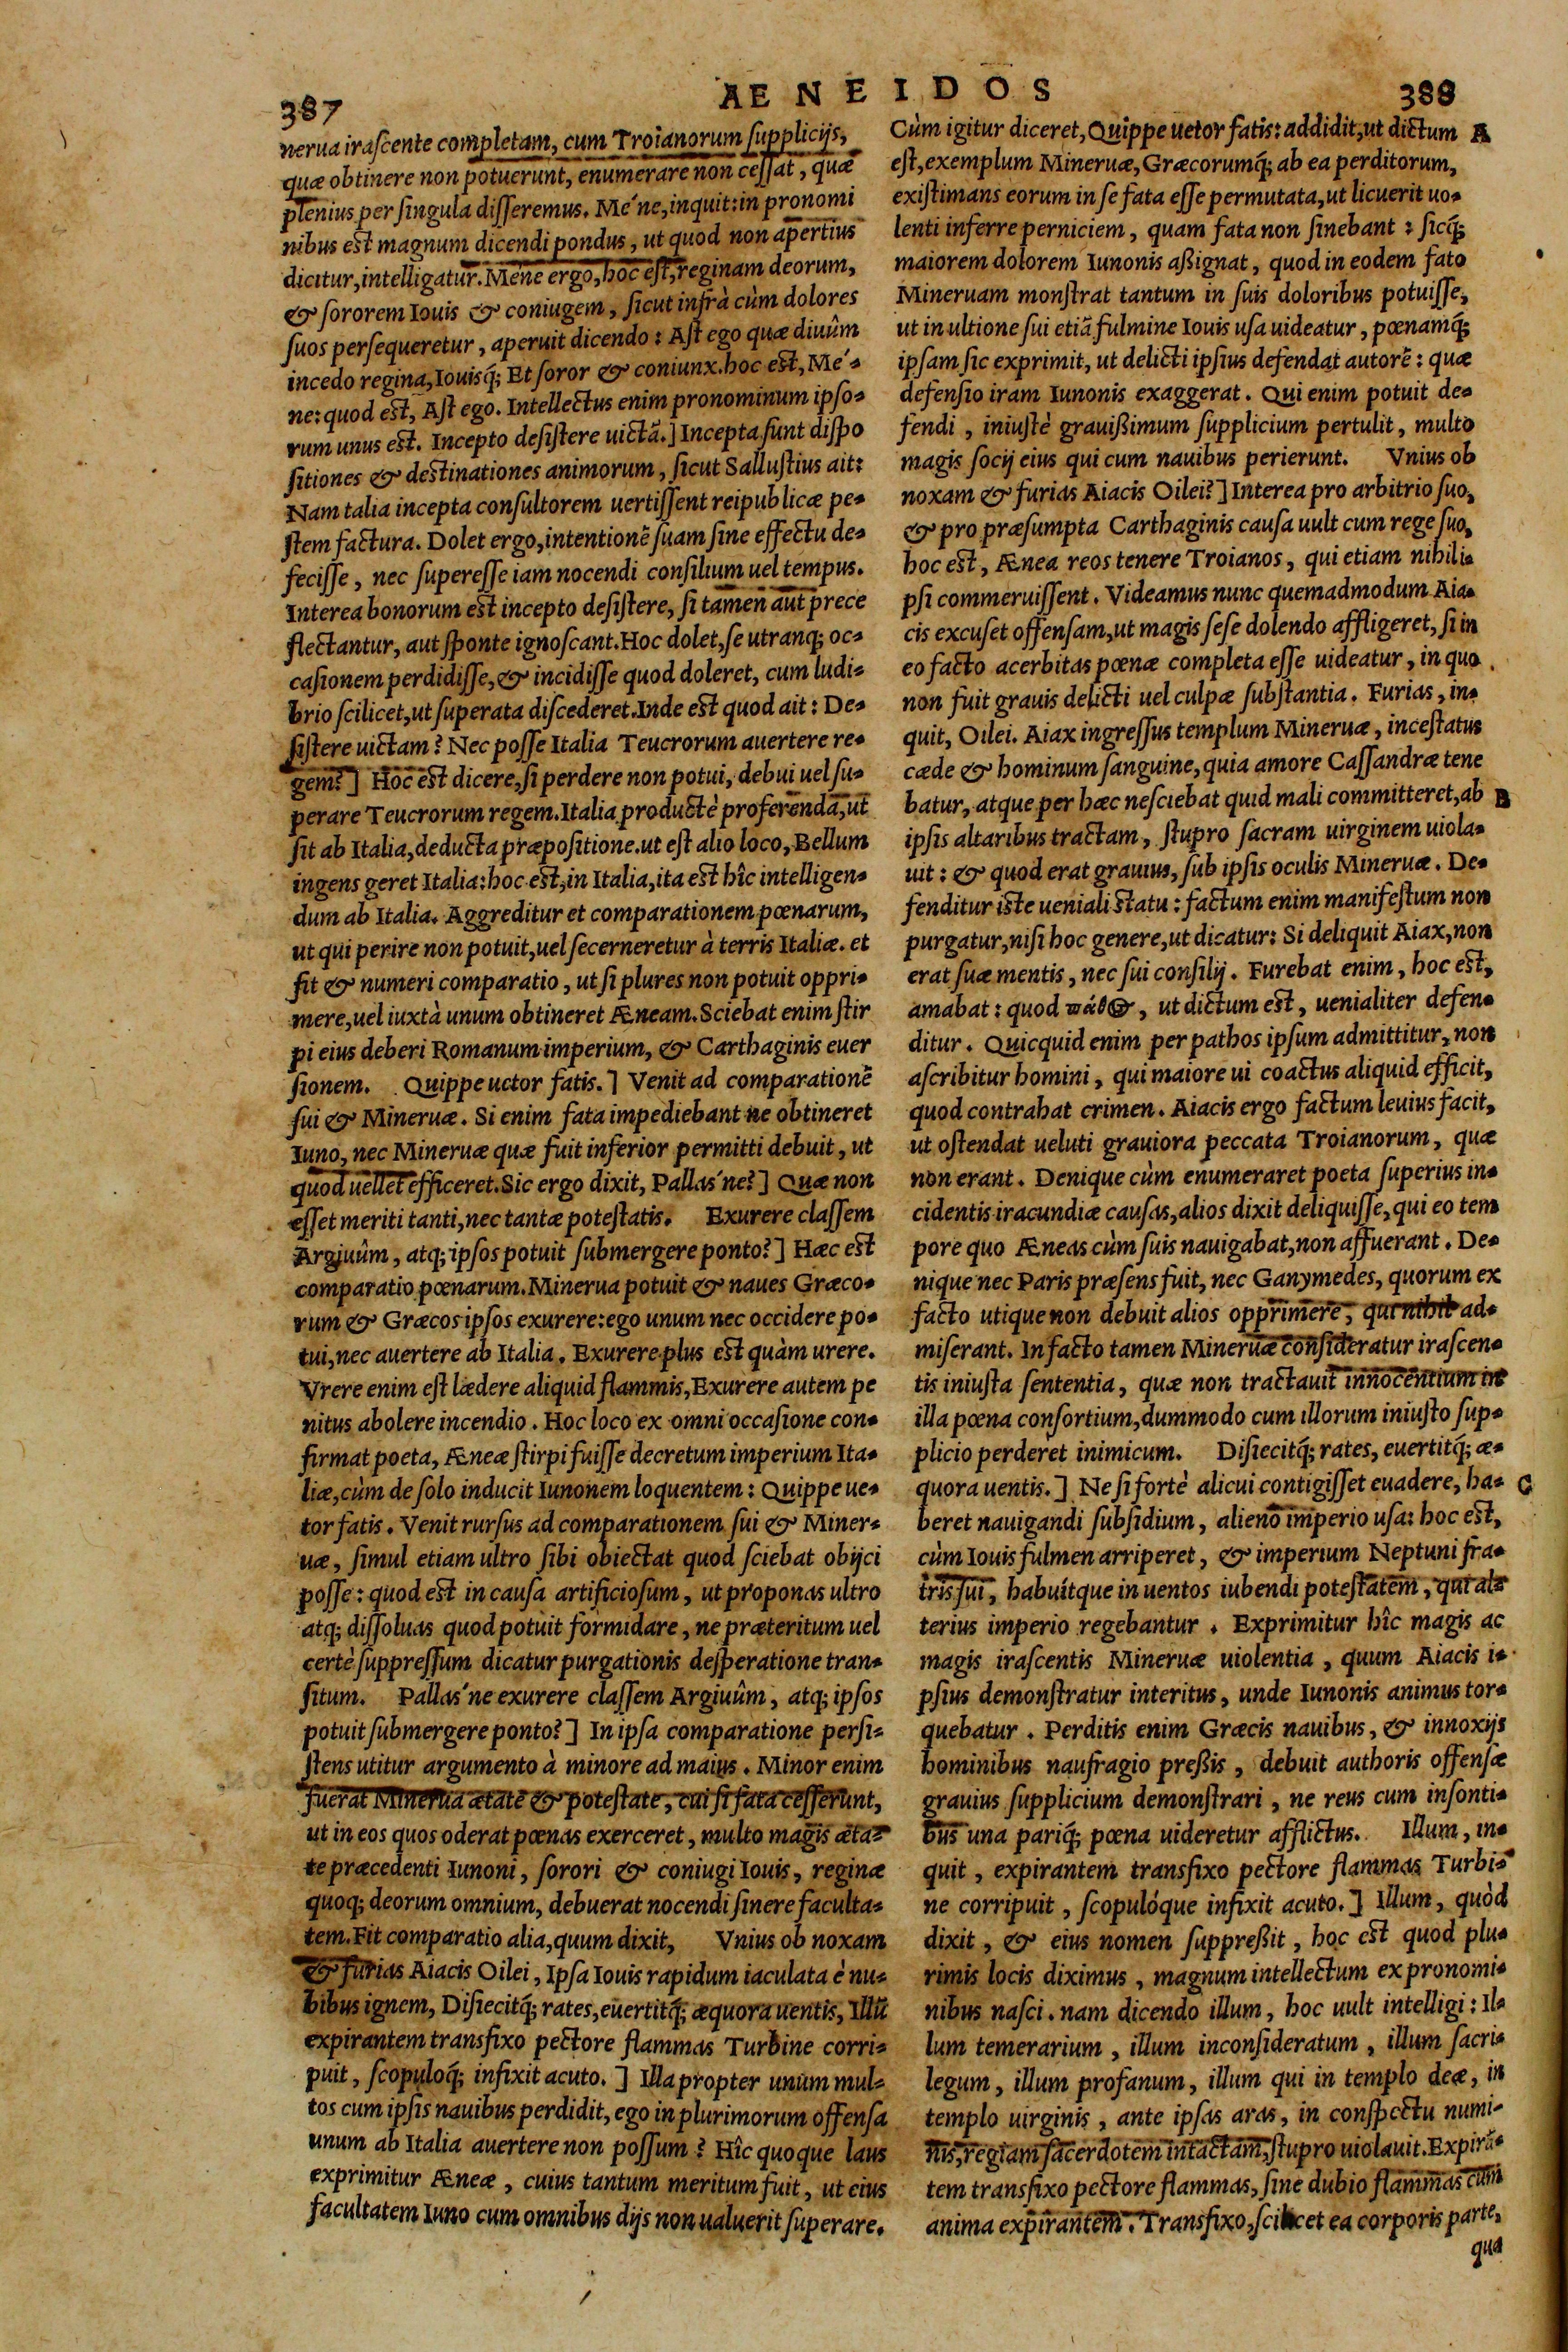 387
AENEIDOS
388
nerua iraſcente completam, cum Troianorum ſupplicijs,
quæ obtinere non potuerunt, enumerare non ceſſat, quæ
plenius per ſingula diſſeremus. Me´ne, inquit: in pronomi
nibus est magnum dicendi pondus, ut quod non apertius
dicitur, intelligatur. Mene ergo, hoc eſt, reginam deorum,
& ſororem Iouis & coniugem, ſicut infrà cùm dolores
ſuos perſequeretur, aperuit dicendo: Aſt ego quæ diuûm
incedo regina, Iouisq́; Et ſoror & coniunx. hoc est, Me´-
ne: quod est, Aſt ego. Intellectus enim pronominum ipſo-
rum unus est. Incepto deſiſtere uictã.] Incepta ſunt diſpo
ſitiones & destinationes animorum, ſicut Salluſtius ait:
Nam talia incepta conſultorem uertiſſent reipublicæ pe-
ſtem factura. Dolet ergo, intentionẽ ſuam ſine effectu de-
feciſſe, nec ſupereſſe iam nocendi conſilium uel tempus.
Interea bonorum est incepto deſiſtere, ſi tamen aut prece
flectantur, aut ſponte ignoſcant. Hoc dolet, ſe utranq; oc-
caſionem perdidiſſe, & incidiſſe quod doleret, cum ludi-
brio ſcilicet, ut ſuperata diſcederet. Inde est quod ait: De-
ſiſtere uictam? Nec poſſe Italia Teucrorum auertere re-
gem?] Hoc est dicere, ſi perdere non potui, debui uel ſu-
perare Teucrorum regem. Italia productè proferenda, ut
ſit ab Italia, deducta præpoſitione. ut eſt alio loco, Bellum
ingens geret Italia: hoc est, in Italia, ita est hîc intelligen-
dum ab Italia. Aggreditur et comparationem pœnarum,
ut qui perire non potuit, uel ſecerneretur à terris Italiæ. et
fit & numeri comparatio, ut ſi plures non potuit oppri-
mere, uel iuxtà unum obtineret Æneam. Sciebat enim ſtir
pi eius deberi Romanum imperium, & Carthaginis euer
ſionem. Quippe uetor fatis.] Venit ad comparationẽ
ſui & Mineruæ. Si enim fata impediebant ne obtineret
Iuno, nec Mineruæ quæ fuit inferior permitti debuit, ut
quod uellet efficeret. Sic ergo dixit, Pallas´ne?] Quæ non
eſſet meriti tanti, nec tantæ poteſtatis. Exurere claſſem
Argiuûm, atq; ipſos potuit ſubmergere ponto?] Hæc est
comparatio pœnarum. Minerua potuit & naues Græco-
rum & Græcos ipſos exurere: ego unum nec occidere po-
tui, nec auertere ab Italia. Exurere plus est quàm urere.
Vrere enim eſt lædere aliquid flammis, Exurere autem pe
nitus abolere incendio. Hoc loco ex omni occaſione con-
firmat poeta, Æneæ ſtirpi fuiſſe decretum imperium Ita-
liæ, cùm de ſolo inducit Iunonem loquentem: Quippe ue-
tor fatis. Venit rurſus ad comparationem ſui & Miner-
uæ, ſimul etiam ultro ſibi obiectat quod ſciebat obijci
poſſe: quod est in cauſa artificioſum, ut proponas ultro
atq; diſſoluas quod potuit formidare, ne præteritum uel
certè ſuppreſſum dicatur purgationis deſperatione tran-
ſitum. Pallas´ne exurere claſſem Argiuûm, atq; ipſos
potuit ſubmergere ponto?] In ipſa comparatione perſi-
ſtens utitur argumento à minore ad maius. Minor enim
fuerat Minerua ætate & poteſtate, cui ſi fata ceſſerunt,
ut in eos quos oderat pœnas exerceret, multo magis æta-
te præcedenti Iunoni, ſorori & coniugi Iouis, reginæ
quoq; deorum omnium, debuerat nocendi ſinere faculta-
tem. Fit comparatio alia, quum dixit, Vnius ob noxam
& furias Aiacis Oilei, Ipſa Iouis rapidum iaculata è nu-
bibus ignem, Diſiecitq́; rates, euertitq́; æquora uentis, Illũ
expirantem transfixo pectore flammas Turbine corri-
puit, ſcopuloq́; infixit acuto.] Illa propter unum mul-
tos cum ipſis nauibus perdidit, ego in plurimorum offenſa
unum ab Italia auertere non poſſum? Hîc quoque laus
exprimitur Æneæ, cuius tantum meritum fuit, ut eius
facultatem Iuno cum omnibus dijs non ualuerit ſuperare.
Cùm igitur diceret, Quippe uetor fatis: addidit, ut dictum A
eſt, exemplum Mineruæ, Græcorumq́; ab ea perditorum,
exiſtimans eorum in ſe fata eſſe permutata, ut licuerit uo-
lenti inferre perniciem, quam fata non ſinebant: ſicq́;
maiorem dolorem Iunonis aßignat, quod in eodem fato
Mineruam monſtrat tantum in ſuis doloribus potuiſſe,
ut in ultione ſui etiã fulmine Iouis uſa uideatur, pœnamq́;
ipſam ſic exprimit, ut delicti ipſius defendat autorẽ: quæ
defenſio iram Iunonis exaggerat. Qui enim potuit de-
fendi, iniuſtè grauißimum ſupplicium pertulit, multo
magis ſocij eius qui cum nauibus perierunt. Vnius ob
noxam & furias Aiacis Oilei?] Interea pro arbitrio ſuo,
& pro præſumpta Carthaginis cauſa uult cum rege ſuo,
hoc est, Ænea reos tenere Troianos, qui etiam nihil i-
pſi commeruiſſent. Videamus nunc quemadmodum Aia-
cis excuſet offenſam, ut magis ſeſe dolendo affligeret, ſi in
eo facto acerbitas pœnæ completa eſſe uideatur, in quo
non fuit grauis delicti uel culpæ ſubſtantia. Furias, in-
quit, Oilei. Aiax ingreſſus templum Mineruæ, inceſtatus
cæde & hominum ſanguine, quia amore Caſſandræ tene
batur, atque per hæc neſciebat quid mali committeret, ab B
ipſis altaribus tractam, ſtupro ſacram uirginem uiola-
uit: & quod erat grauius, ſub ipſis oculis Mineruæ. De-
fenditur iste ueniali statu: factum enim manifeſtum non
purgatur, niſi hoc genere, ut dicatur: Si deliquit Aiax, non
erat ſuæ mentis, nec ſui conſilij. Furebat enim, hoc est,
amabat: quod πάθος, ut dictum est, uenialiter defen-
ditur. Quicquid enim per pathos ipſum admittitur, non
aſcribitur homini, qui maiore ui coactus aliquid efficit,
quod contrahat crimen. Aiacis ergo factum leuius facit,
ut oſtendat ueluti grauiora peccata Troianorum, quæ
non erant. Denique cùm enumeraret poeta ſuperius in-
cidentis iracundiæ cauſas, alios dixit deliquiſſe, qui eo tem
pore quo Æneas cùm ſuis nauigabat, non affuerant. De-
nique nec Paris præſens fuit, nec Ganymedes, quorum ex
facto utique non debuit alios opprimere, qui nihil ad-
miſerant. In facto tamen Mineruæ conſideratur iraſcen-
tis iniuſta ſententia, quæ non tractauit innocentium in
illa pœna conſortium, dummodo cum illorum iniuſto ſup-
plicio perderet inimicum. Diſiecitq́; rates, euertitq́; æ-
quora uentis.] Ne ſi fortè alicui contigiſſet euadere, ha- C
beret nauigandi ſubſidium, alieno imperio uſa: hoc est,
cùm Iouis fulmen arriperet, & imperium Neptuni fra-
tris ſui, habuítque in uentos iubendi poteſtatem, qui al-
terius imperio regebantur. Exprimitur hîc magis ac
magis iraſcentis Mineruæ uiolentia, quum Aiacis i-
pſius demonſtratur interitus, unde Iunonis animus tor-
quebatur. Perditis enim Græcis nauibus, & innoxijs
hominibus naufragio preßis, debuit authoris offenſæ
grauius ſupplicium demonſtrari, ne reus cum inſonti-
bus una pariq́; pœna uideretur afflictus. Illum, in-
quit, expirantem transfixo pectore flammas Turbi-
ne corripuit, ſcopulóque infixit acuto.] Illum, quòd
dixit, & eius nomen ſuppreßit, hoc est quod plu-
rimis locis diximus, magnum intellectum ex pronomi-
nibus naſci. nam dicendo illum, hoc uult intelligi: Il-
lum temerarium, illum inconſideratum, illum ſacri-
legum, illum profanum, illum qui in templo deæ, in
templo uirginis, ante ipſas aras, in conſpectu numi-
nis, regiam ſacerdotem intactam, ſtupro uiolauit. Expirã-
tem transfixo pectore flammas, ſine dubio flammas cum
anima expirantem. Transfixo, ſcilicet ea corporis parte,
qua